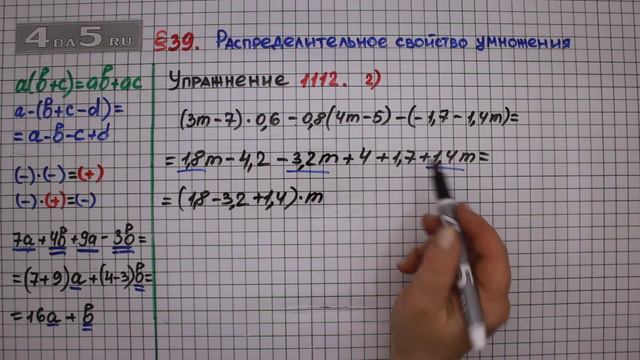 4DA5.RU
§39. Распределительное свойство умножения
Упражнение 1112. 2)
a(b+c)=ab+ac
a-(b+c-d)=
=a-b-c+d
(-)·(-)=(+)
(-)·(+)=(-)
7a+4b+9a-3b=
=(7+9)a+(4-3)b=
=16a+b
(3m-7)·0,6-0,8(4m-5)-(-1,7-1,4m)=
=1,8m-4,2-3,2m+4+1,7+1,4m=
=(1,8-3,2+1,4)·m